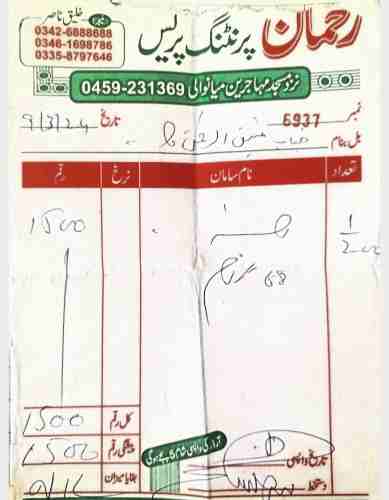 رحمان پرنٹنگ پریس
خلیق ناصر
0342-6888688
0346-1698786
0335-8797646
نزد مسجد مہاجرین میانوالی 0459-231369
نمبر 6937 تاریخ 9/3/24
بل بنام جناب
تعداد نام سامان نرخ رقم
1/200 1500
68 گرام
کل رقم 1500
پیشگی رقم 1500
بقایا میزان
آرڈر کی واپسی شام 5 بجے ہوگی
تاریخ واپسی
دستخط